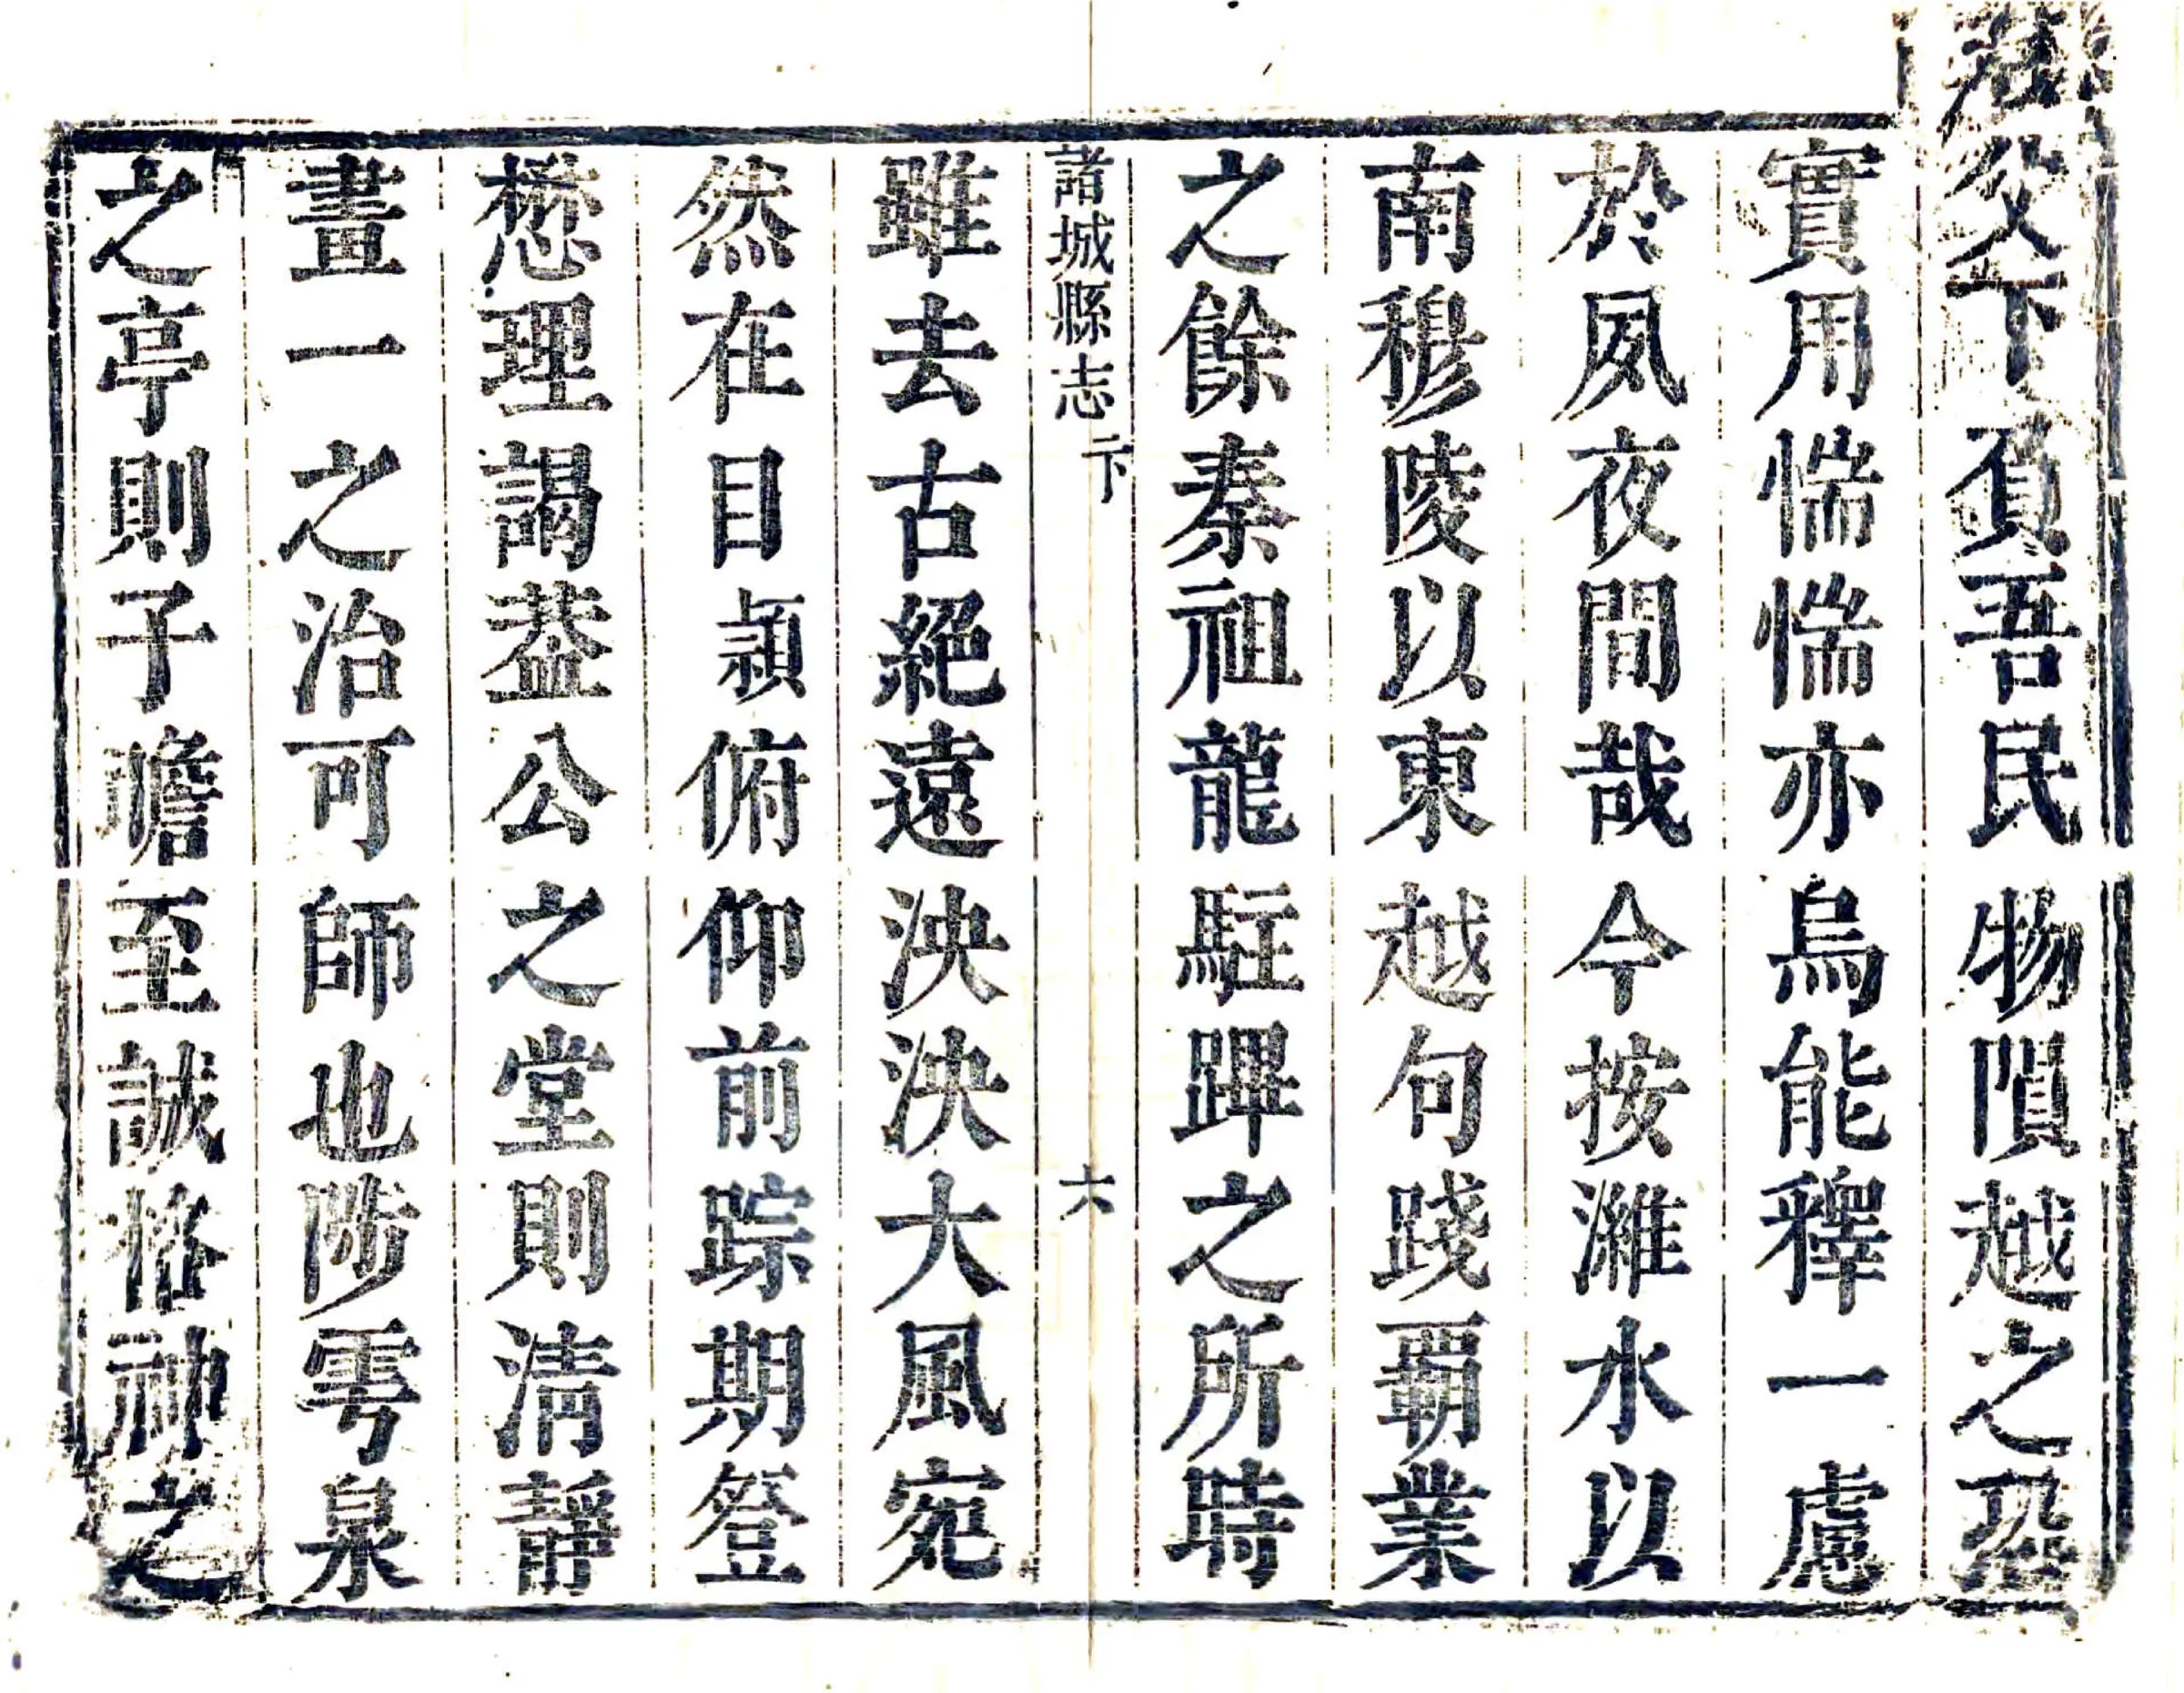 君父下負吾民物隕越之恐
實用惴惴亦烏能釋一慮
於夙夜間哉今按濰水以
南穆陵以東越句踐霸業
之餘秦祖龍駐蹕之所時
諸城縣志 卞 六
雖去古絕遠泱泱大風宛
然在目頴俯仰前踪期登
懋理謁葢公之堂則淸靜
畫一之治可師也陟雩泉
之亭則子瞻至誠格神之